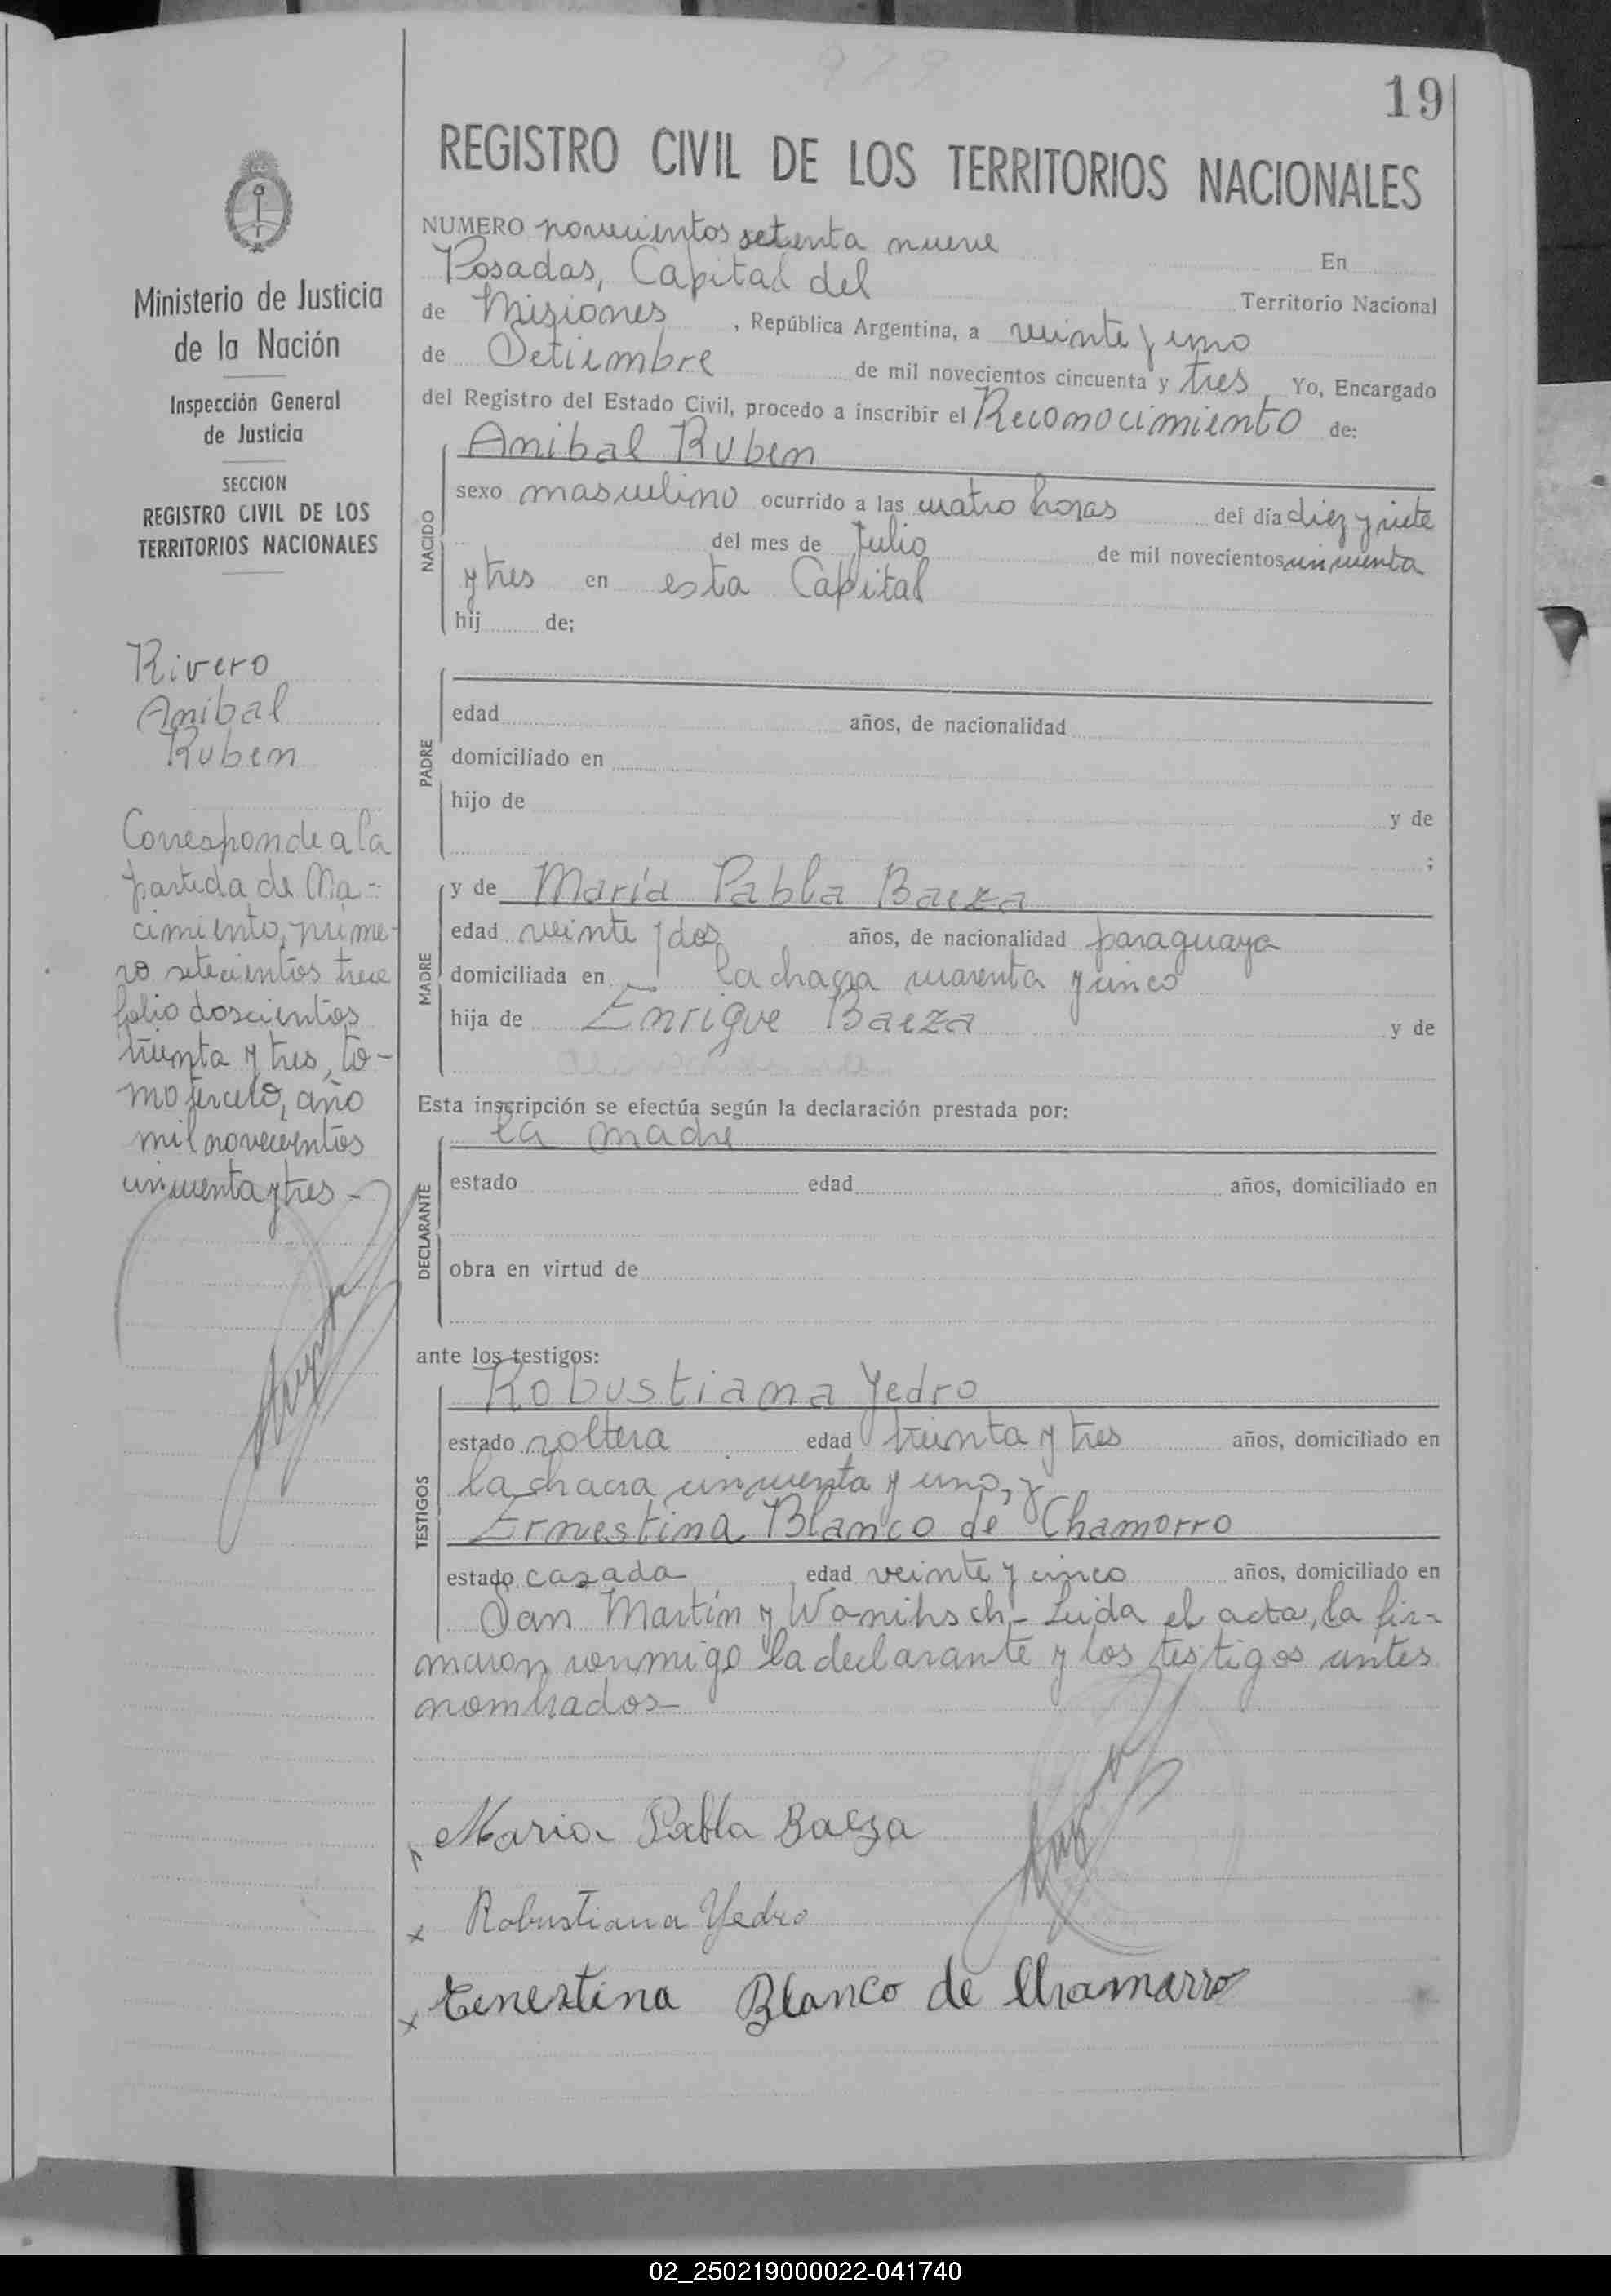 979
19
REGISTRO CIVIL DE LOS TERRITORIOS NACIONALES
NUMERO novecientos setenta nueve En
Posadas, Capital del Territorio Nacional
de Misiones, República Argentina, a veinte y uno
de Setiembre de mil novecientos cincuenta y tres Yo, Encargado
del Registro del Estado Civil, procedo a inscribir el Reconocimiento de:
NACIDO
Anibal Ruben
sexo masculino ocurrido a las cuatro horas del día diez y siete
del mes de Julio de mil novecientos cincuenta
y tres en esta Capital
hij de;
PADRE
edad años, de nacionalidad
domiciliado en
hijo de y de
;
MADRE
y de María Pabla Baeza
edad veinte y dos años, de nacionalidad paraguaya
domiciliada en la chacra cuarenta y cinco
hija de Enrique Baeza y de
Esta inscripción se efectúa según la declaración prestada por:
DECLARANTE
la madre
estado edad años, domiciliado en
obra en virtud de
ante los testigos:
TESTIGOS
Robustiana Yedro
estado soltera edad treinta y tres años, domiciliado en
la chacra cincuenta y uno, y
Ernestina Blanco de Chamorro
estado casada edad veinte y cinco años, domiciliado en
San Martín y - Leida el acta, la fir=
maron conmigo la declarante y los testigos antes
nombrados-
Maria Pabla Baeza
x Robustiana Yedro
x Ernestina Blanco de Chamorro
Ministerio de Justicia
de la Nación
Inspección General
de Justicia
SECCION
REGISTRO CIVIL DE LOS
TERRITORIOS NACIONALES
Rivero
Anibal
Ruben
Corresponde a la
partida de Na=
cimiento, núme-
ro setecientos trece
folio doscientos
treinta y tres, to-
mo tercero, año
mil novecientos
cincuenta y tres-
02_250219000022-041740